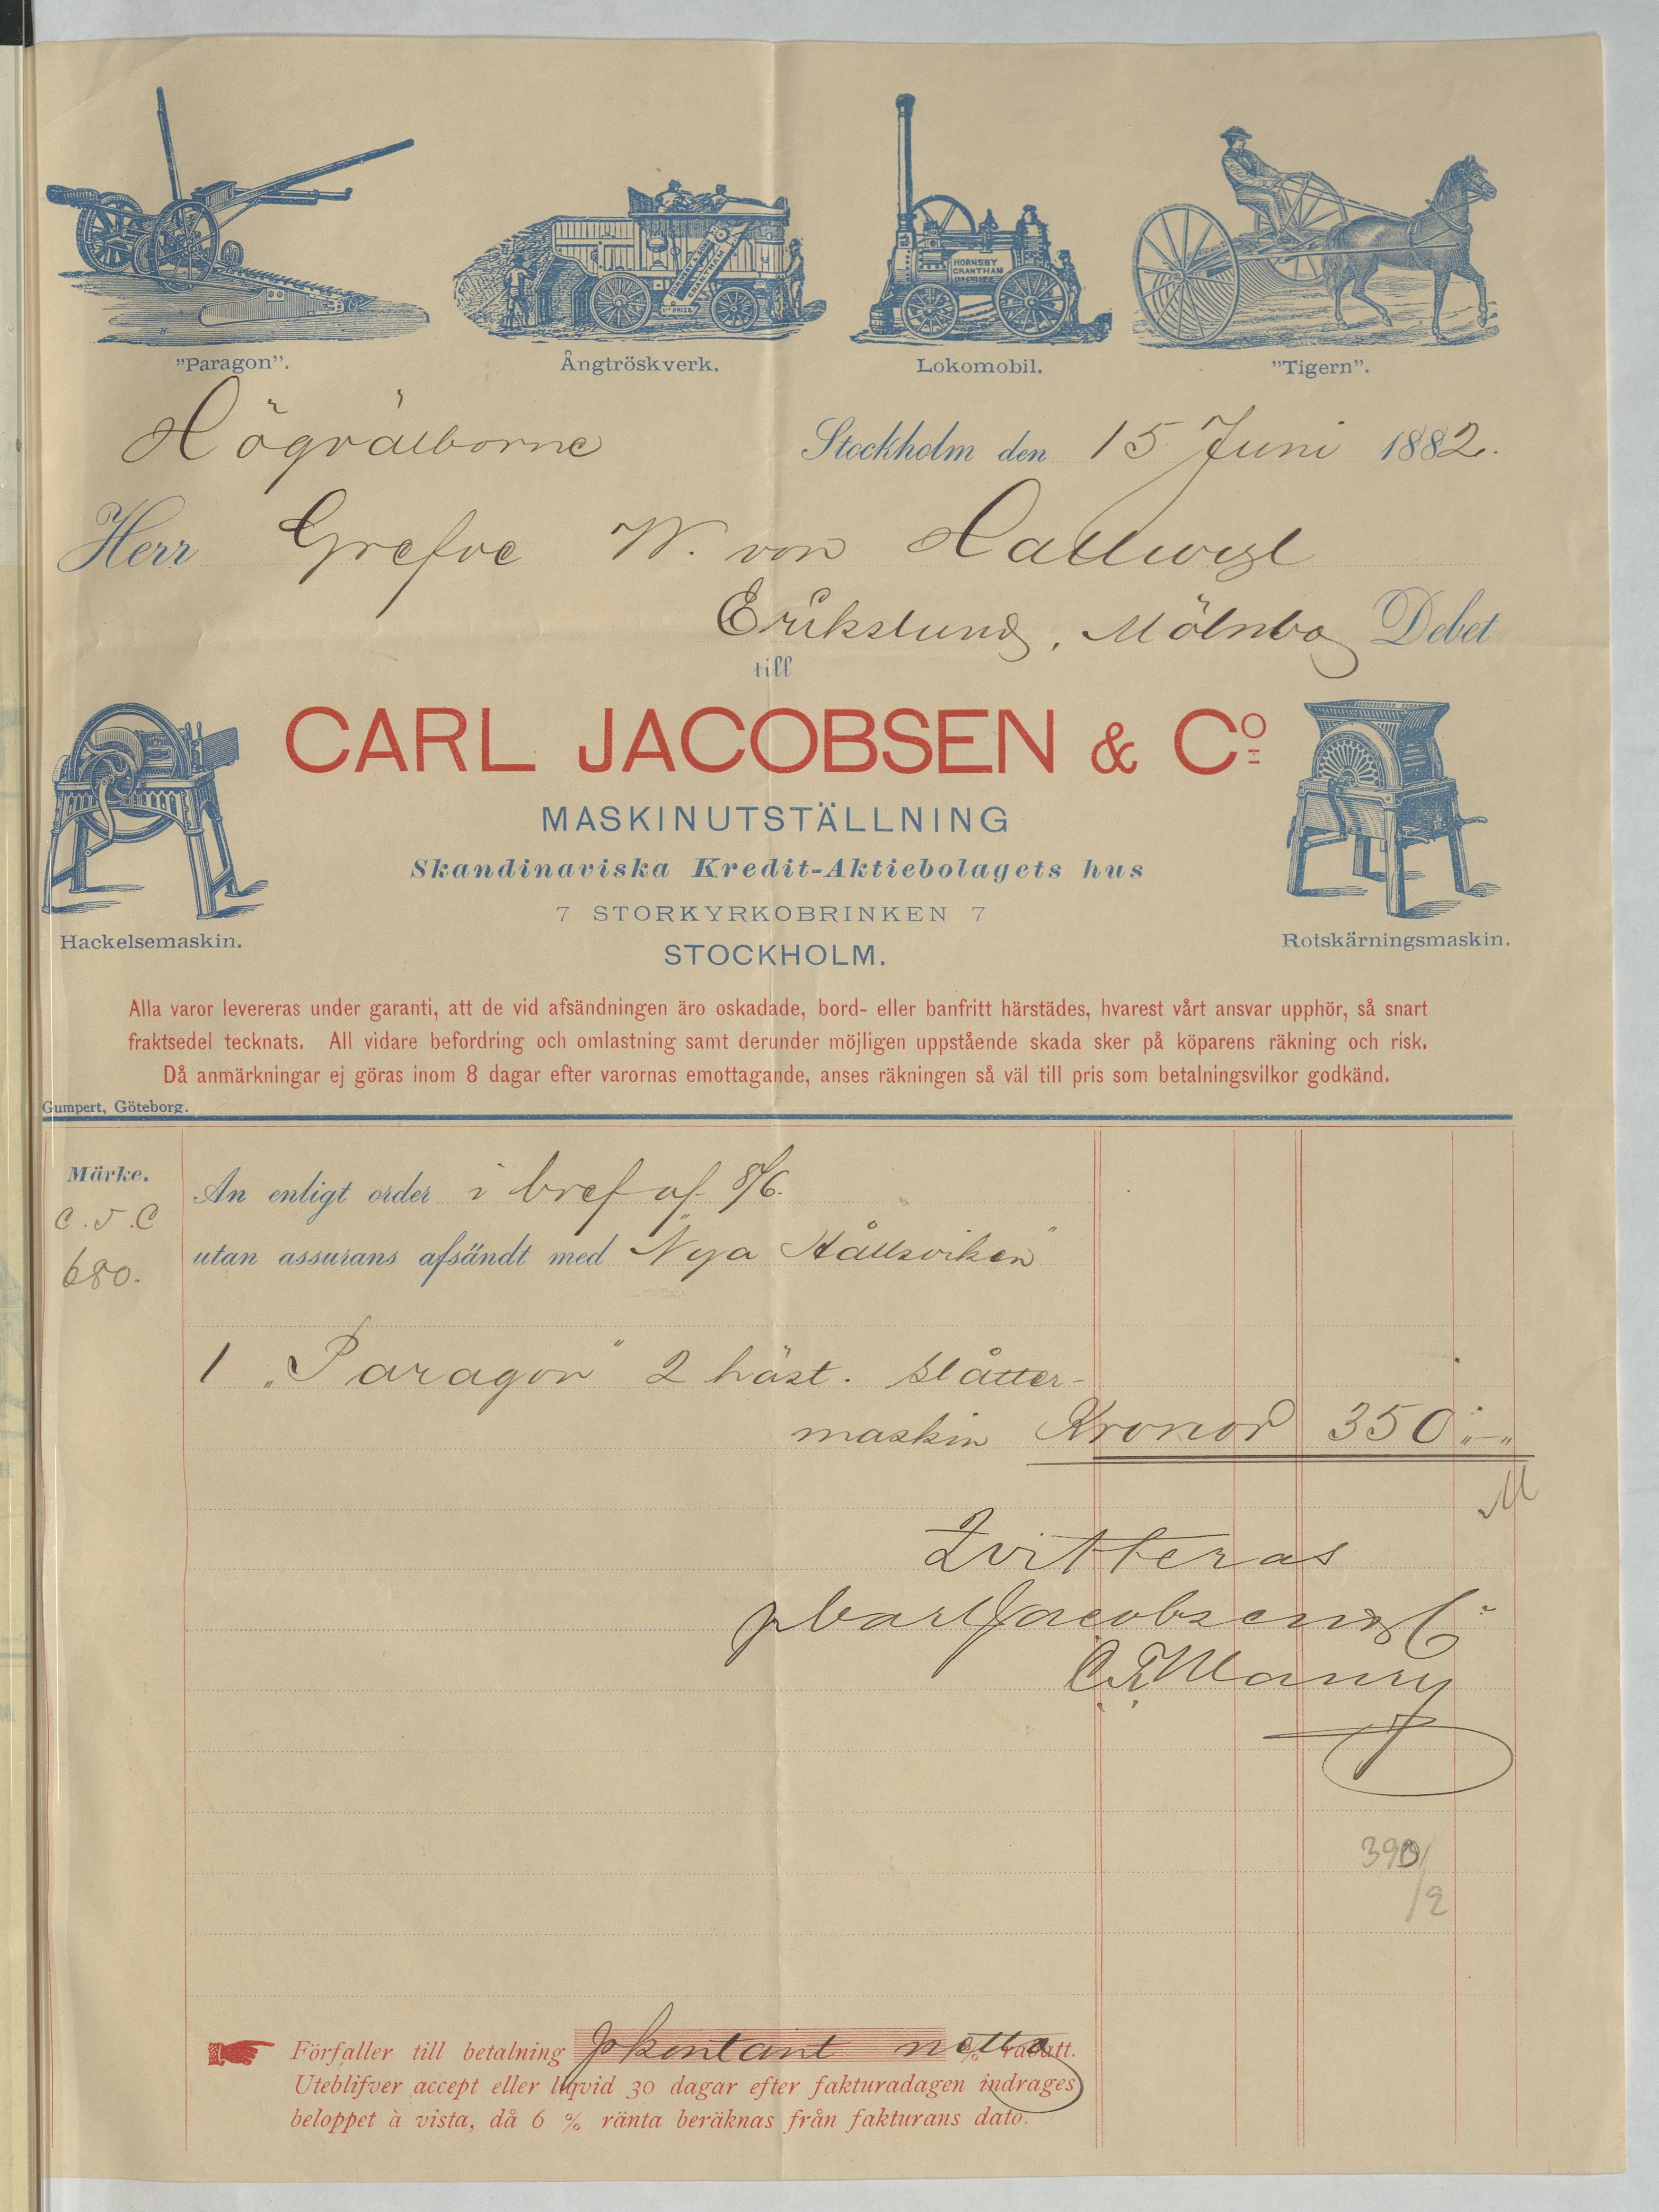 HORNSBY
GRANTHAM
1ST PRIZE
"Paragon".
Ångtröskverk.
Lokomobil.
"Tigern".
Högvälborne
Stockholm den 15 Juni 1882.
Herr Grefve W. von Hallwyl
Erikslund, Mölnbo Debet
till
CARL JACOBSEN & Co
MASKINUTSTÄLLNING
Skandinaviska Kredit-Aktiebolagets hus
7 STORKYRKOBRINKEN 7
STOCKHOLM.
Hackelsemaskin.
Rotskärningsmaskin.
Alla varor levereras under garanti, att de vid afsändningen äro oskadade, bord- eller banfritt härstädes, hvarest vårt ansvar upphör, så snart
fraktsedel tecknats. All vidare befordring och omlastning samt derunder möjligen uppstående skada sker på köparens räkning och risk.
Då anmärkningar ej göras inom 8 dagar efter varornas emottagande, anses räkningen så väl till pris som betalningsvilkor godkänd.
Gumpert, Göteborg.
Märke.
C.J.C
680.
An enligt order i bref af 8/6.
utan assurans afsändt med "Nya Hållsviken"
1 „Paragon" 2 häst. slåtter-
maskin Kronor 350 „—„
M
Qvitteras
p Carl Jacobsen & Co
390/
/2
Förfaller till betalning p kontant netto % rabatt.
Uteblifver accept eller liqvid 30 dagar efter fakturadagen indrages
beloppet à vista, då 6 % ränta beräknas från fakturans dato.